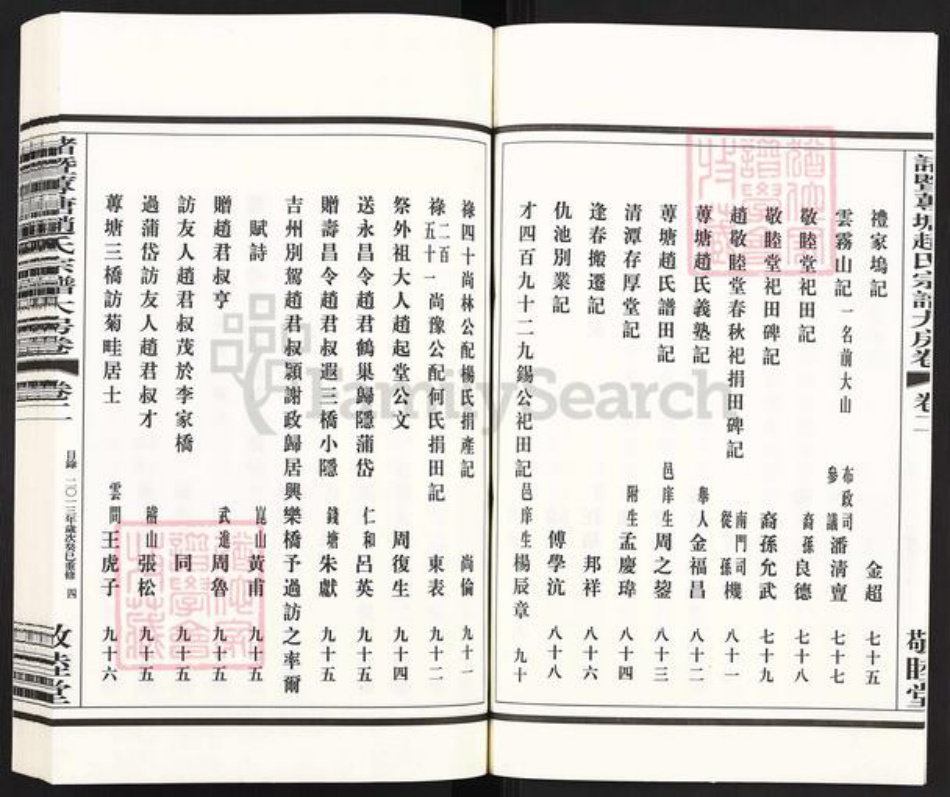 諸暨蓴塘趙氏宗譜大房卷 卷二
敬睦堂
禮家塢記 金超 七十五
雲霧山記 一名前大山 布政司參議潘清亶 七十七
敬睦堂祀田記 裔孫良德 七十八
敬睦堂祀田碑記 裔孫允武 七十九
趙敬睦堂春秋祀捐田碑記 南門司從孫機 八十一
蓴塘趙氏義塾記 舉人金福昌 八十二
蓴塘趙氏譜田記 邑庠生周之鋆 八十三
清潭存厚堂記 附生孟慶瑋 八十四
逢春搬遷記 邦祥 八十六
仇池別業記 傅學沆 八十八
才四百九十二九錫公祀田記 邑庠生楊辰章 九十
祿四十尚林公配楊氏捐產記 尚倫 九十一
祿二百五十一尚豫公配何氏捐田記 東表 九十二
祭外祖大人趙起堂公文 周復生 九十四
送永昌令趙君鶴巢歸隱蒲岱 仁和呂英 九十五
贈壽昌令趙君叔遐三橋小隱 錢塘朱獻 九十五
吉州別駕趙君叔灝謝政歸居興樂橋予過訪之率爾
賦詩 崑山黃甫 九十五
贈趙君叔亨 武進周魯 九十五
訪友人趙君叔茂於李家橋 同 九十五
過蒲岱訪友人趙君叔才 稽山張松 九十五
蓴塘三橋訪菊畦居士 雲間王虎子 九十六
諸暨蓴塘趙氏宗譜大房卷 卷二
目錄 二〇一三年歲次癸巳重修 四
敬睦堂
FamilySearch